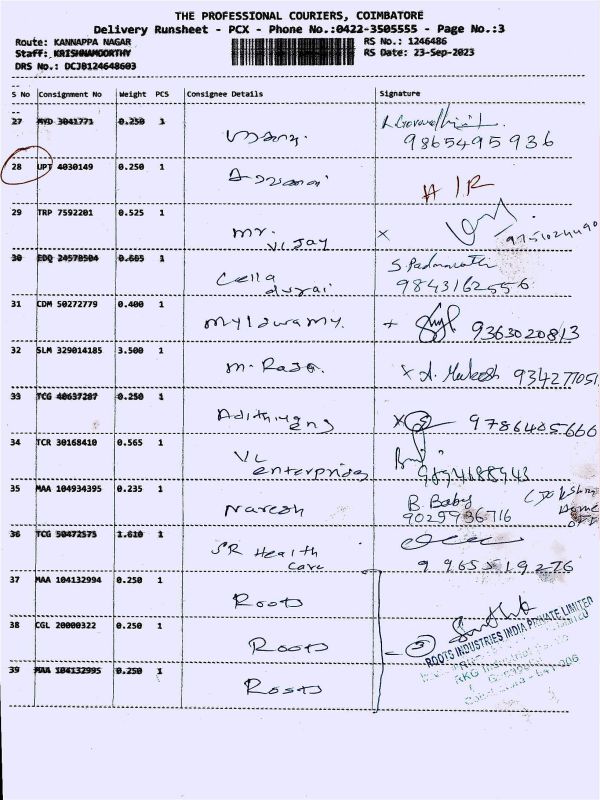 THE PROFESSIONAL COURIERS, COIMBATORE
Delivery Runsheet - PCX - Phone No.:0422-3505555 - Page No.:3
Route: KANNAPPA NAGAR
RS No.: 1246486
Staff: KRISHNAMOORTHY
RS Date: 23-Sep-2023
DRS No.: DCJB124648603
S No Consignment No Weight PCS Consignee Details Signature
27 MYD 3041771 0.250 1
9865495936
28 UPT 4030149 0.250 1
29 TRP 7592201 0.525 1 Mr. Vijay x
30 EDQ 24578504 0.665 1 Cella durai S Padmavathi
9843162556
31 CDM 50272779 0.400 1 Mylswamy. + 9363020813
32 SLM 329014185 3.500 1 M. Raja. x A. Mukesh 934277051
33 TCG 40637287 0.250 1 Adithiya eng x 9786405666
34 TCR 30168410 0.565 1 VL enterprices
9894688943
35 MAA 104934395 0.235 1 Naresh B. Baby
9025936716
Home
36 TCG 50472575 1.610 1 SR Health care
9965519276
37 MAA 104132994 0.250 1 Roots
38 CGL 20000322 0.250 1 Roots
39 MAA 104132995 0.250 1 Roots
3
ROOTS INDUSTRIES INDIA PRIVATE LIMITED